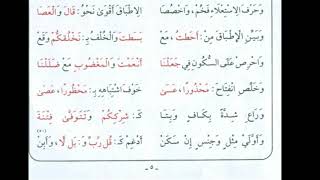 وَحَرْفَ الِاسْتِعْلَاءِ فَخِّمْ، وَاخْصُصَا الِاطْبَاقَ أَقْوَىٰ نَحْوُ: قَالَ وَالْعَصَا
وَبَيِّنِ الْإِطْبَاقَ مِنْ: أَحَطتُ، مَعْ بَسَطتَ، وَالْخُلْفُ بِـ: نَخْلُقكُّمْ وَقَعْ
وَاحْرِصْ عَلَى السُّكُونِ فِي جَعَلْنَا أَنْعَمْتَ وَالْمَغْضُوبِ مَعْ ضَلَلْنَا
وَخَلِّصِ انْفِتَاحَ: مَحْذُورًا، عَسَىٰ خَوْفَ اشْتِبَاهِهِ بِـ: مَحْظُورًا، عَصَىٰ
وَرَاعِ شِدَّةً بِكَافٍ وَبِتَا كَـ: شِرْكِكُمْ وَتَتَوَفَّىٰ فِتْنَةَ
وَأَوَّلَيْ مِثْلٍ وَجِنْسٍ إِنْ سَكَنْ أَدْغِمْ كَـ: قُل رَّبِّ وَ: بَل لَّا، وَأَبِنْ
- ٥ -